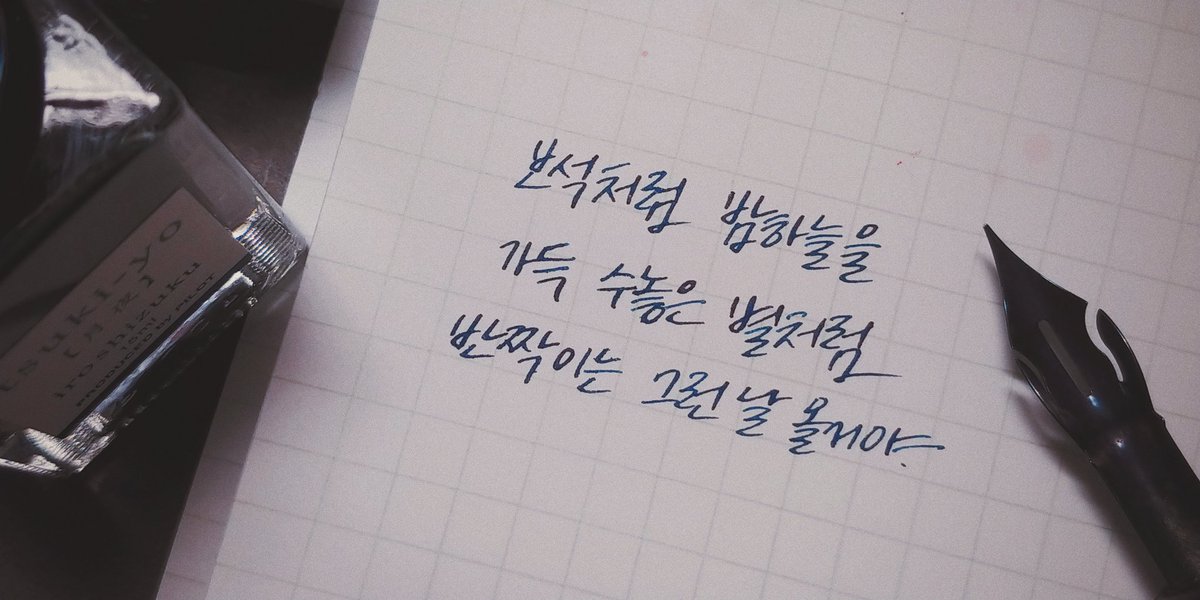 보석처럼 밤하늘을
가득 수놓은 별처럼
반짝이는 그런 날 올거야.
tsuki-yo
[月夜]
iroshizuku
PRODUCED BY PILOT